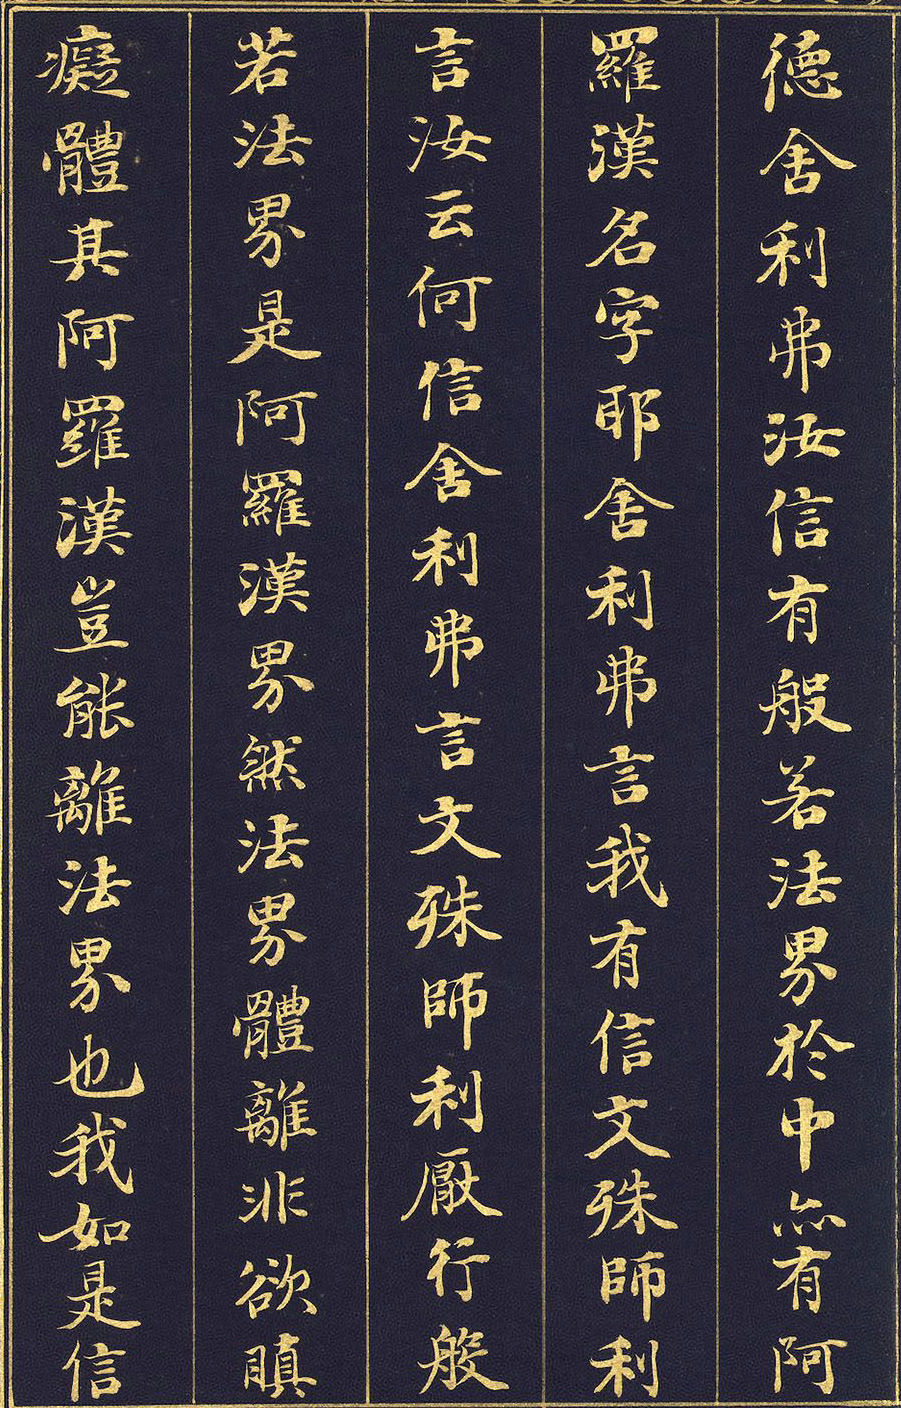 德舍利弗汝信有般若法界於中亦有阿
羅漢名字耶舍利弗言我有信文殊師利
言汝云何信舍利弗言文殊師利厥行般
若法界是阿羅漢界然法界體離非欲瞋
癡體其阿羅漢豈能離法界也我如是信